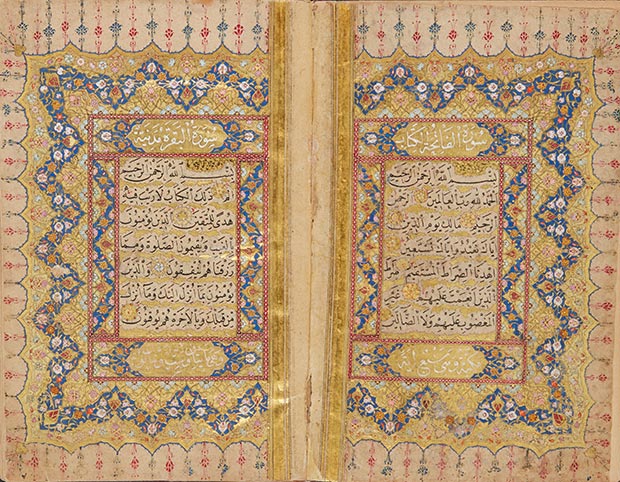 سورة الفاتحة الكتاب
بِسْمِ اللهِ الرَّحْمٰنِ الرَّحِيمِ
اَلْحَمْدُ لِلهِ رَبِّ الْعَالَمِينَ الرَّحْمٰنِ
الرَّحِيمِ مَالِكِ يَوْمِ الدِّينِ
اِيَّاكَ نَعْبُدُ وَاِيَّاكَ نَسْتَعِينُ
اِهْدِنَا الصِّرَاطَ الْمُسْتَقِيمَ صِرَاطَ
الَّذِينَ اَنْعَمْتَ عَلَيْهِمْ غَيْرِ
الْمَغْضُوبِ عَلَيْهِمْ وَلَا الضَّالِّينَ
مكية وهي سبع
سورة البقرة مدنية
بِسْمِ اللهِ الرَّحْمٰنِ الرَّحِيمِ
الم ذٰلِكَ الْكِتَابُ لَا رَيْبَ فِيهِ
هُدًى لِلْمُتَّقِينَ الَّذِينَ يُؤْمِنُونَ
بِالْغَيْبِ وَيُقِيمُونَ الصَّلٰوةَ وَمِمَّا
رَزَقْنَاهُمْ يُنْفِقُونَ وَالَّذِينَ
يُؤْمِنُونَ بِمَا اُنْزِلَ اِلَيْكَ وَمَا اُنْزِلَ
مِنْ قَبْلِكَ وَبِالْاٰخِرَةِ هُمْ يُوقِنُونَ